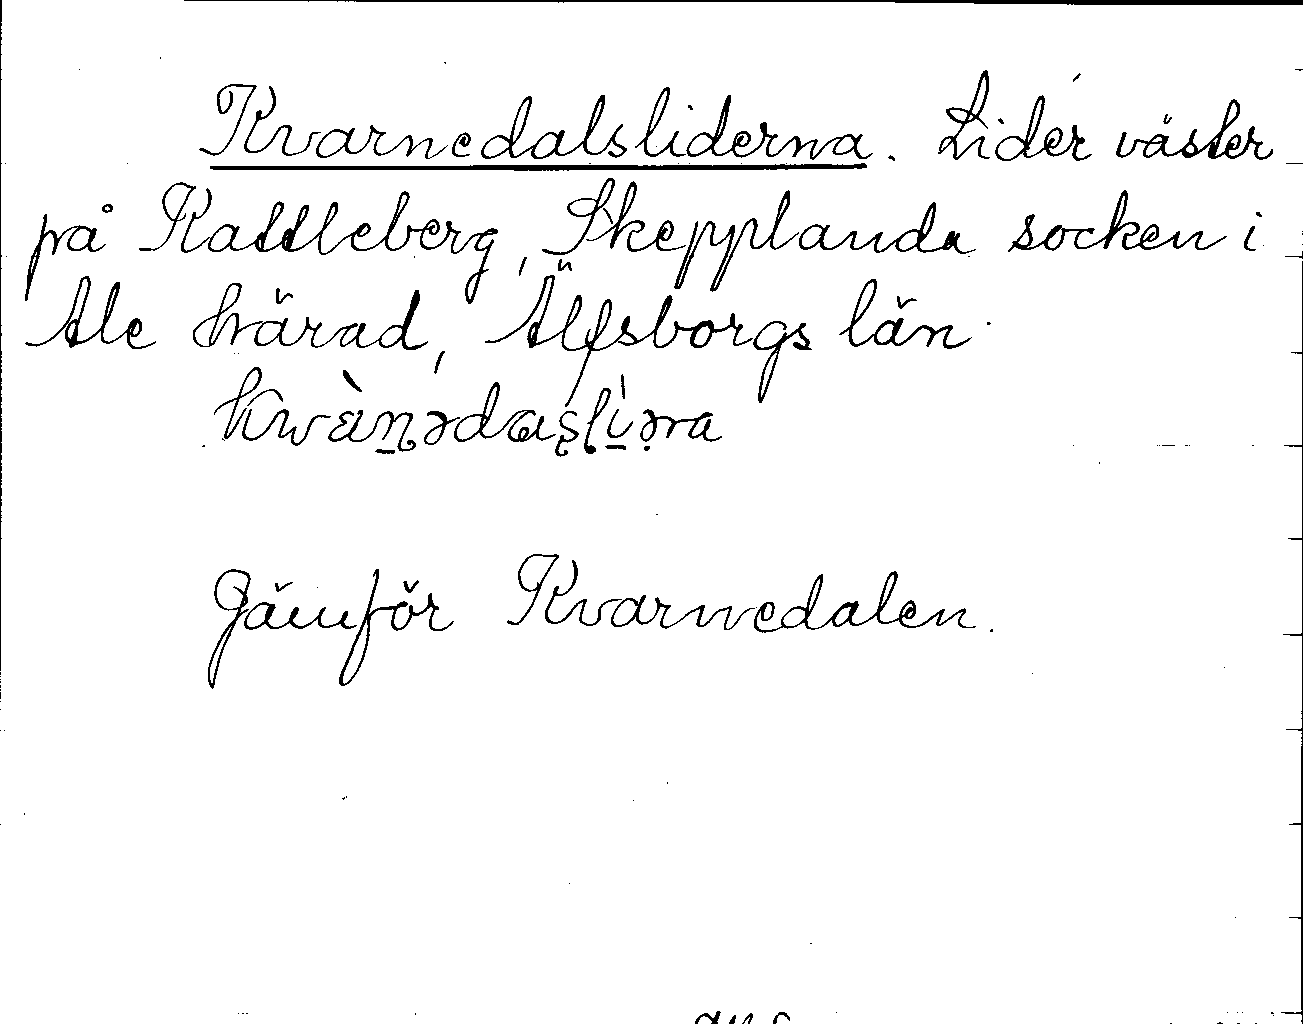 Kvarnedalsliderna. Lider väster
på Kattleberg, Skepplanda socken i
Ale härad, Älfsborgs län

Jämför Kvarnedalen.